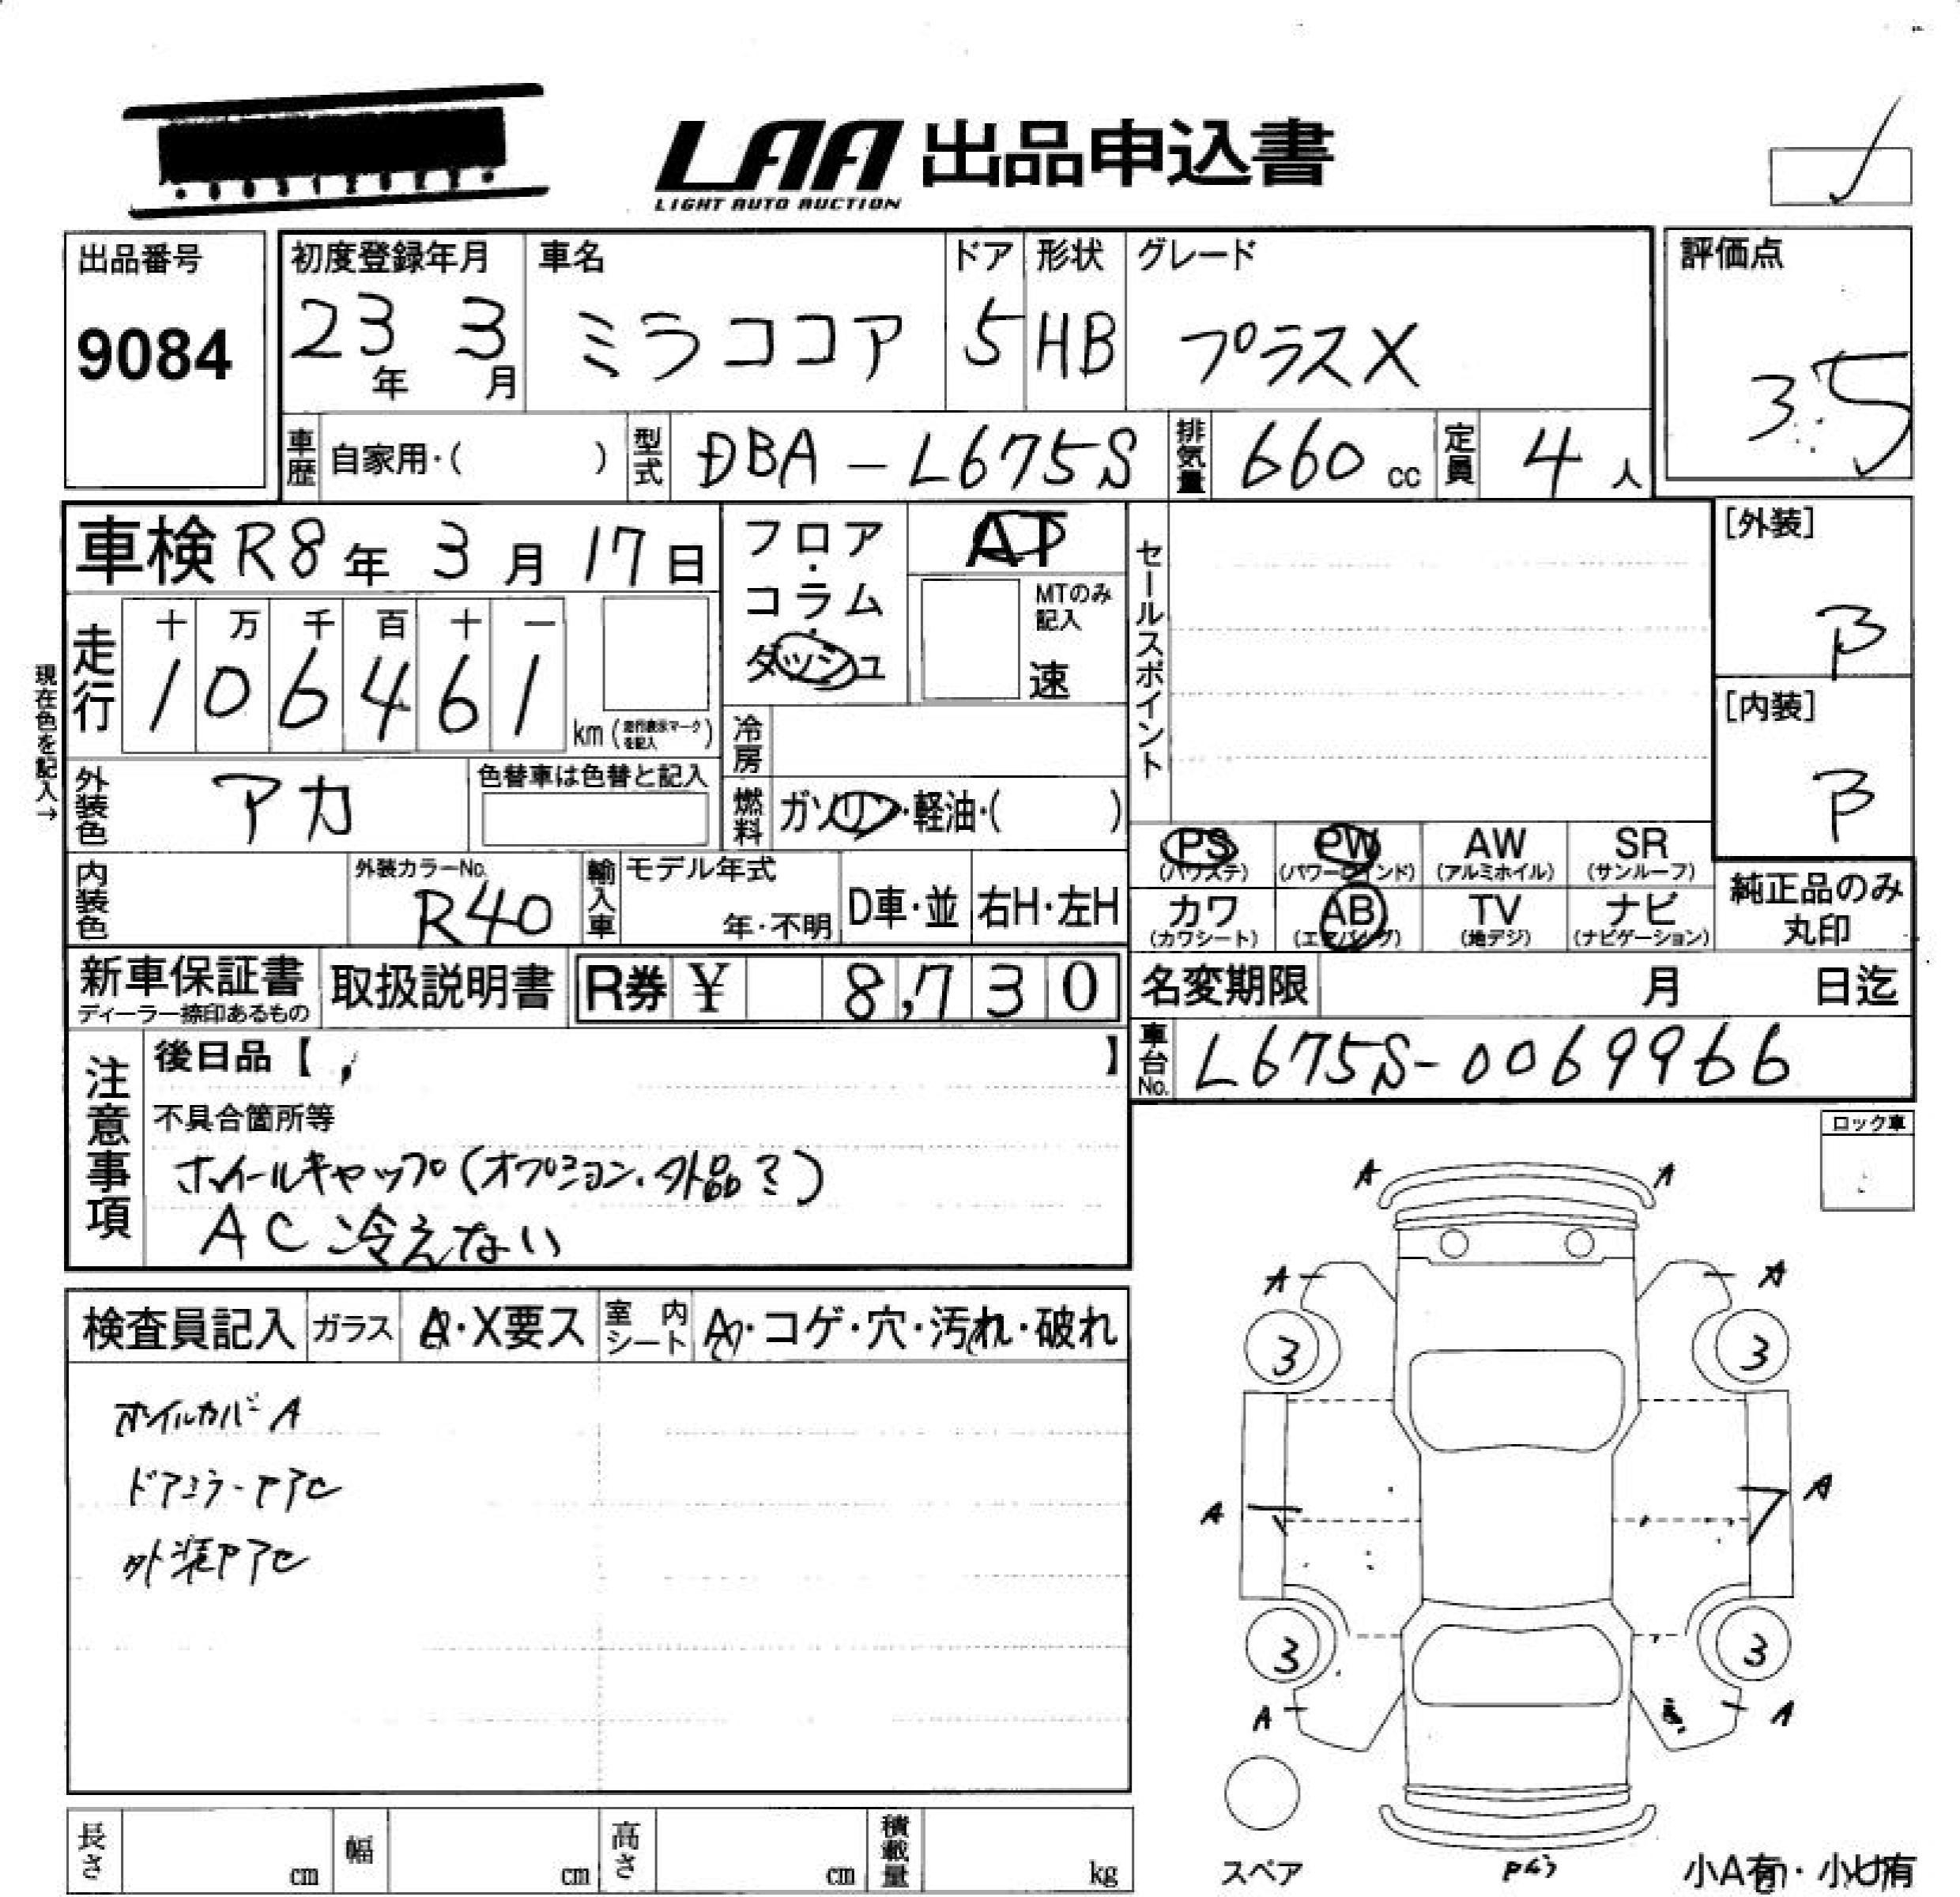 LAA 出品申込書
LIGHT AUTO AUCTION
出品番号
9084
初度登録年月
23年 3月
車名
ミラココア
ドア
5
形状
HB
グレード
プラスX
評価点
3.5
車歴 自家用・( )
型式 DBA-L675S
排気量 660 cc
定員 4人
車検 R8年 3月 17日
走行
十 万 千 百 十 一
1 0 6 4 6 1
km(走行表示マークを記入)
現在色を記入→
フロア・コラム・ダッシュ
AT
MTのみ記入
速
冷房
燃料 ガソリン・軽油・( )
外装色 アカ
色替車は色替と記入
内装色
外装カラーNo.
R40
輸入車
モデル年式
年・不明
D車・並
右H・左H
セールスポイント
[外装]
B
[内装]
B
PS (パワステ)
PW (パワーウインド)
AW (アルミホイル)
SR (サンルーフ)
カワ (カワシート)
AB (エアバッグ)
TV (地デジ)
ナビ (ナビゲーション)
純正品のみ丸印
新車保証書
ディーラー捺印あるもの
取扱説明書
R券 ¥ 8,730
名変期限 月 日迄
車台No. L675S-0069966
注意事項
後日品【 】
不具合箇所等
ホイールキャップ(オプション、外品ミ)
AC 冷えない
ロック車
検査員記入
ガラス A・X要ス
室内シート A・コゲ・穴・汚れ・破れ
ホイルカバー A
ドアミラー
外装
A A
A A
3 3
A A
3 3
A A
スペア
小A有・小U有
長さ cm
幅 cm
高さ cm
積載量 kg